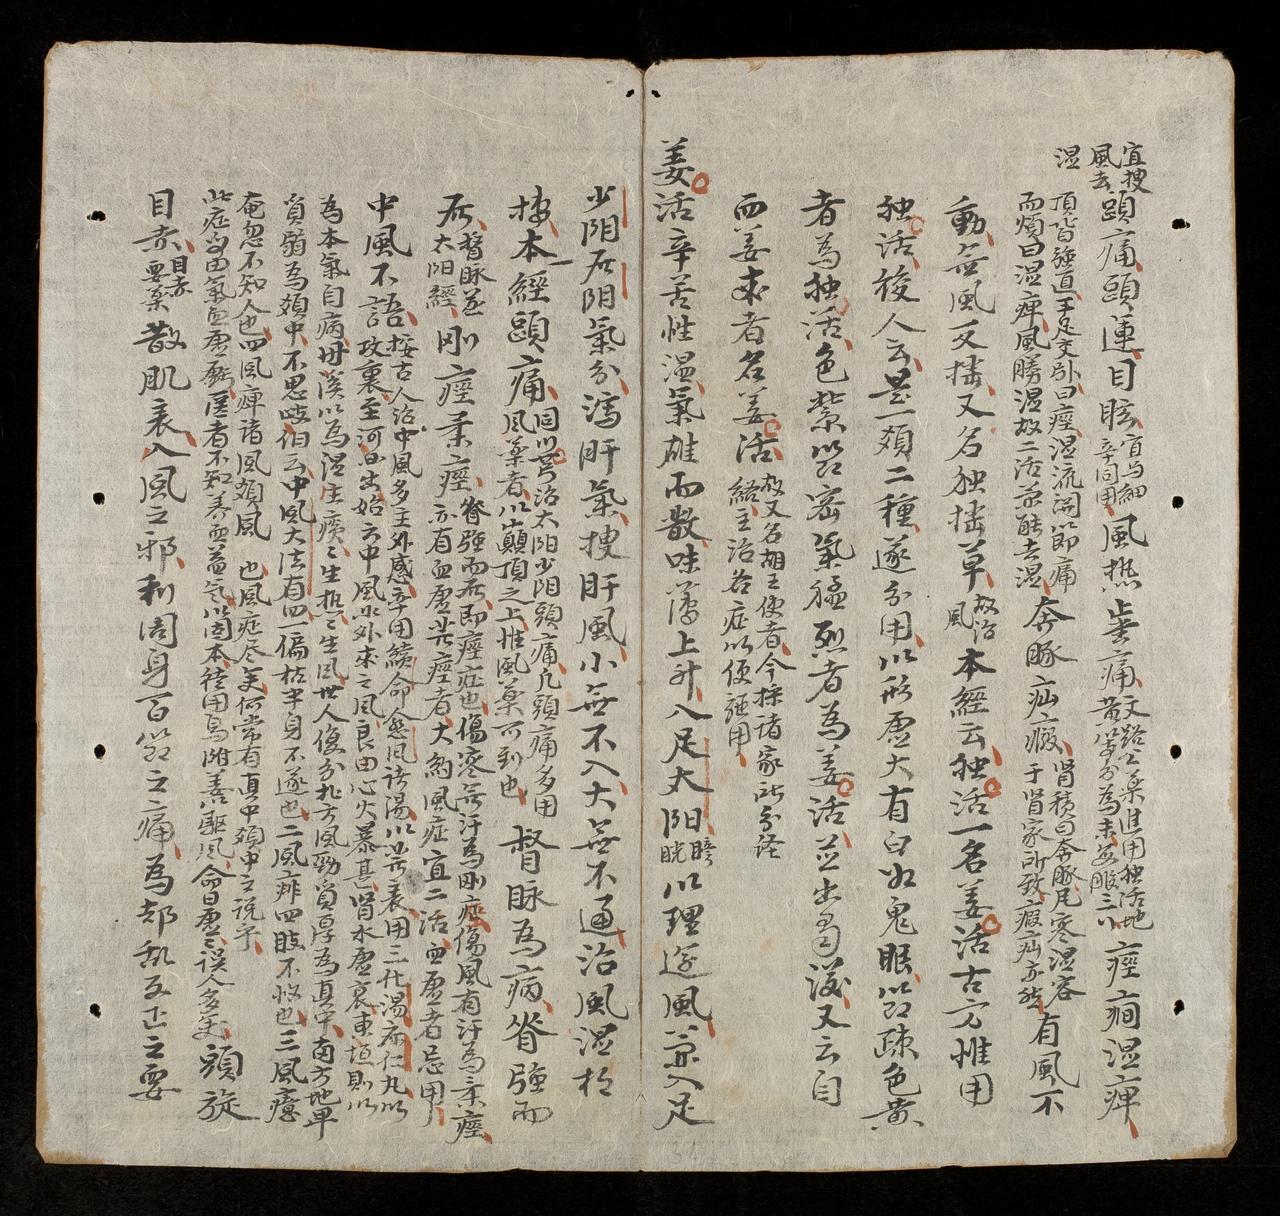 宜搜
風去
湿
頭痛頭運目眩宜与細辛同用風热歯痛文路公薬准用独活地黄等分為末每服三錢痙癇湿痺
項背強直手足交臥曰痙湿流関節痛而煩曰湿痺風勝湿故二活並能去湿奔豚疝瘕肾積曰奔豚尼寒湿客于肾家所致瘕疝亦然有風不
動無風反揺又名独揺草故治風本經云独活一名羌活古方惟用
独活後人云是一類二種遂分用以形虚大有臼如鬼眼節疎色黄
者為独活色紫節密氣猛烈者為姜活並出蜀漢又云自
西姜来者名姜活故又名胡王使者今採諸家所分経絡主治各症以便譝用
姜活辛苦性温氣雄而散味薄上升入足太阳膀胱以理逰風兼入足
少阴厥阴氣分瀉肝氣搜肝風小無不入大無不通治風湿相
搏本經頭痛同川芎治太阳少阴頭痛凡頭痛多用風薬者以巔頂之上惟風薬可到也督脉為病脊強而
厥督脉並太阳經剛痙柔痙脊强而厥即痙症也傷寒無汗為剛痙傷風有汗為柔痙亦有血虚発痙者大約風症宜二活血虚者忌用
中風不語按古人治中風多主外感率用續命愈風諸湯以発表用三化湯麻仁丸以攻裏至河間出始云中風非外来之風良由心火暴甚肾水虚衰東垣則以
為本氣自病丹溪以為湿生痰痰生热热生風世人復分北方風勁質厚為真中南方地卑
質弱為類中不思岐伯云中風大法有四一偏枯半身不遂也二風痱四肢不收也三風癔
奄忽不知人也四風痺諸風類風也風症尽矣何常有真中類中之説乎
此症皆由氣血虚虧医者不知养血益氣以固本徒用烏附善驱風命曰虚虚误人多矣頭旋
目赤目赤要薬散肌表八風之邪利周身百節之痛為却乱反正之要